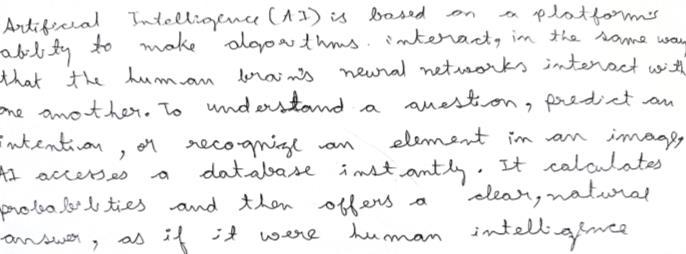 Artificial Intelligence (AI) is based on a platform's
ability to make algorithms interact, in the same way
that the human brain's neural networks interact with
one another. To understand a question, predict an
intention, or recognize an element in an image,
AI accesses a database instantly. It calculates
probabilities and then offers a clear, natural
answer, as if it were human intelligence